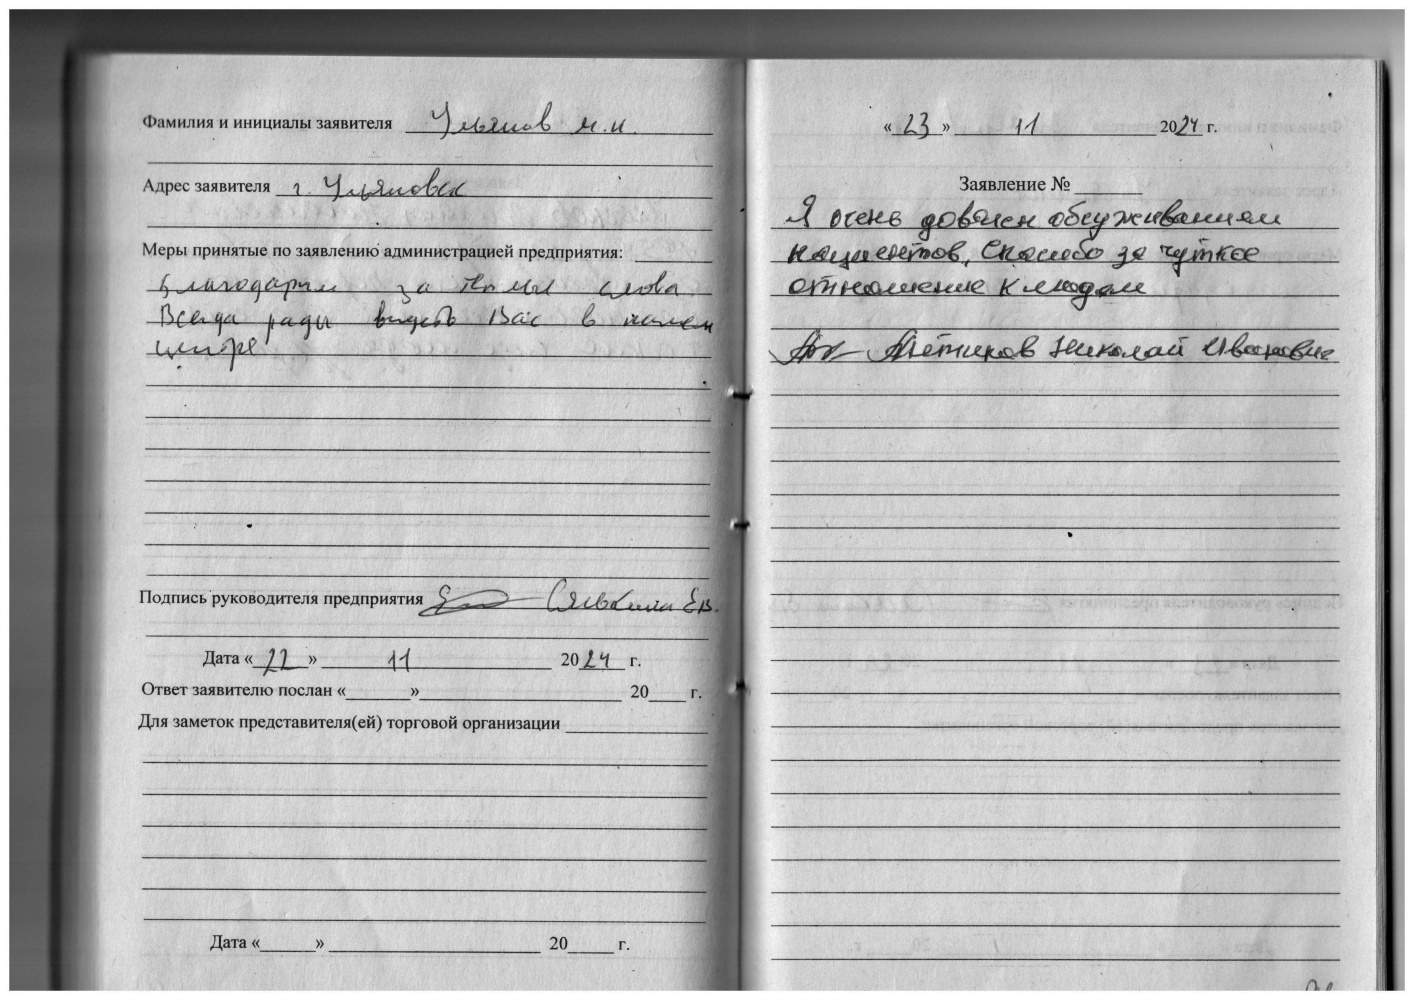 Фамилия и инициалы заявителя Ульянов М.И.
Адрес заявителя г. Ульяновск
Меры принятые по заявлению администрацией предприятия:
Благодарим за слова.
Всегда рады видеть Вас в нашем
центре!
Подпись руководителя предприятия Е.В.
Дата «22» 11 2024 г.
Ответ заявителю послан «______»______ 20____ г.
Для заметок представителя(ей) торговой организации
Дата «______» ______ 20_____ г.
«23» 11 2024 г.
Заявление № _______
Я очень доволен обсуживанием
пациентов. Спасибо за чуткое
отношение к людям
Николай Иванович